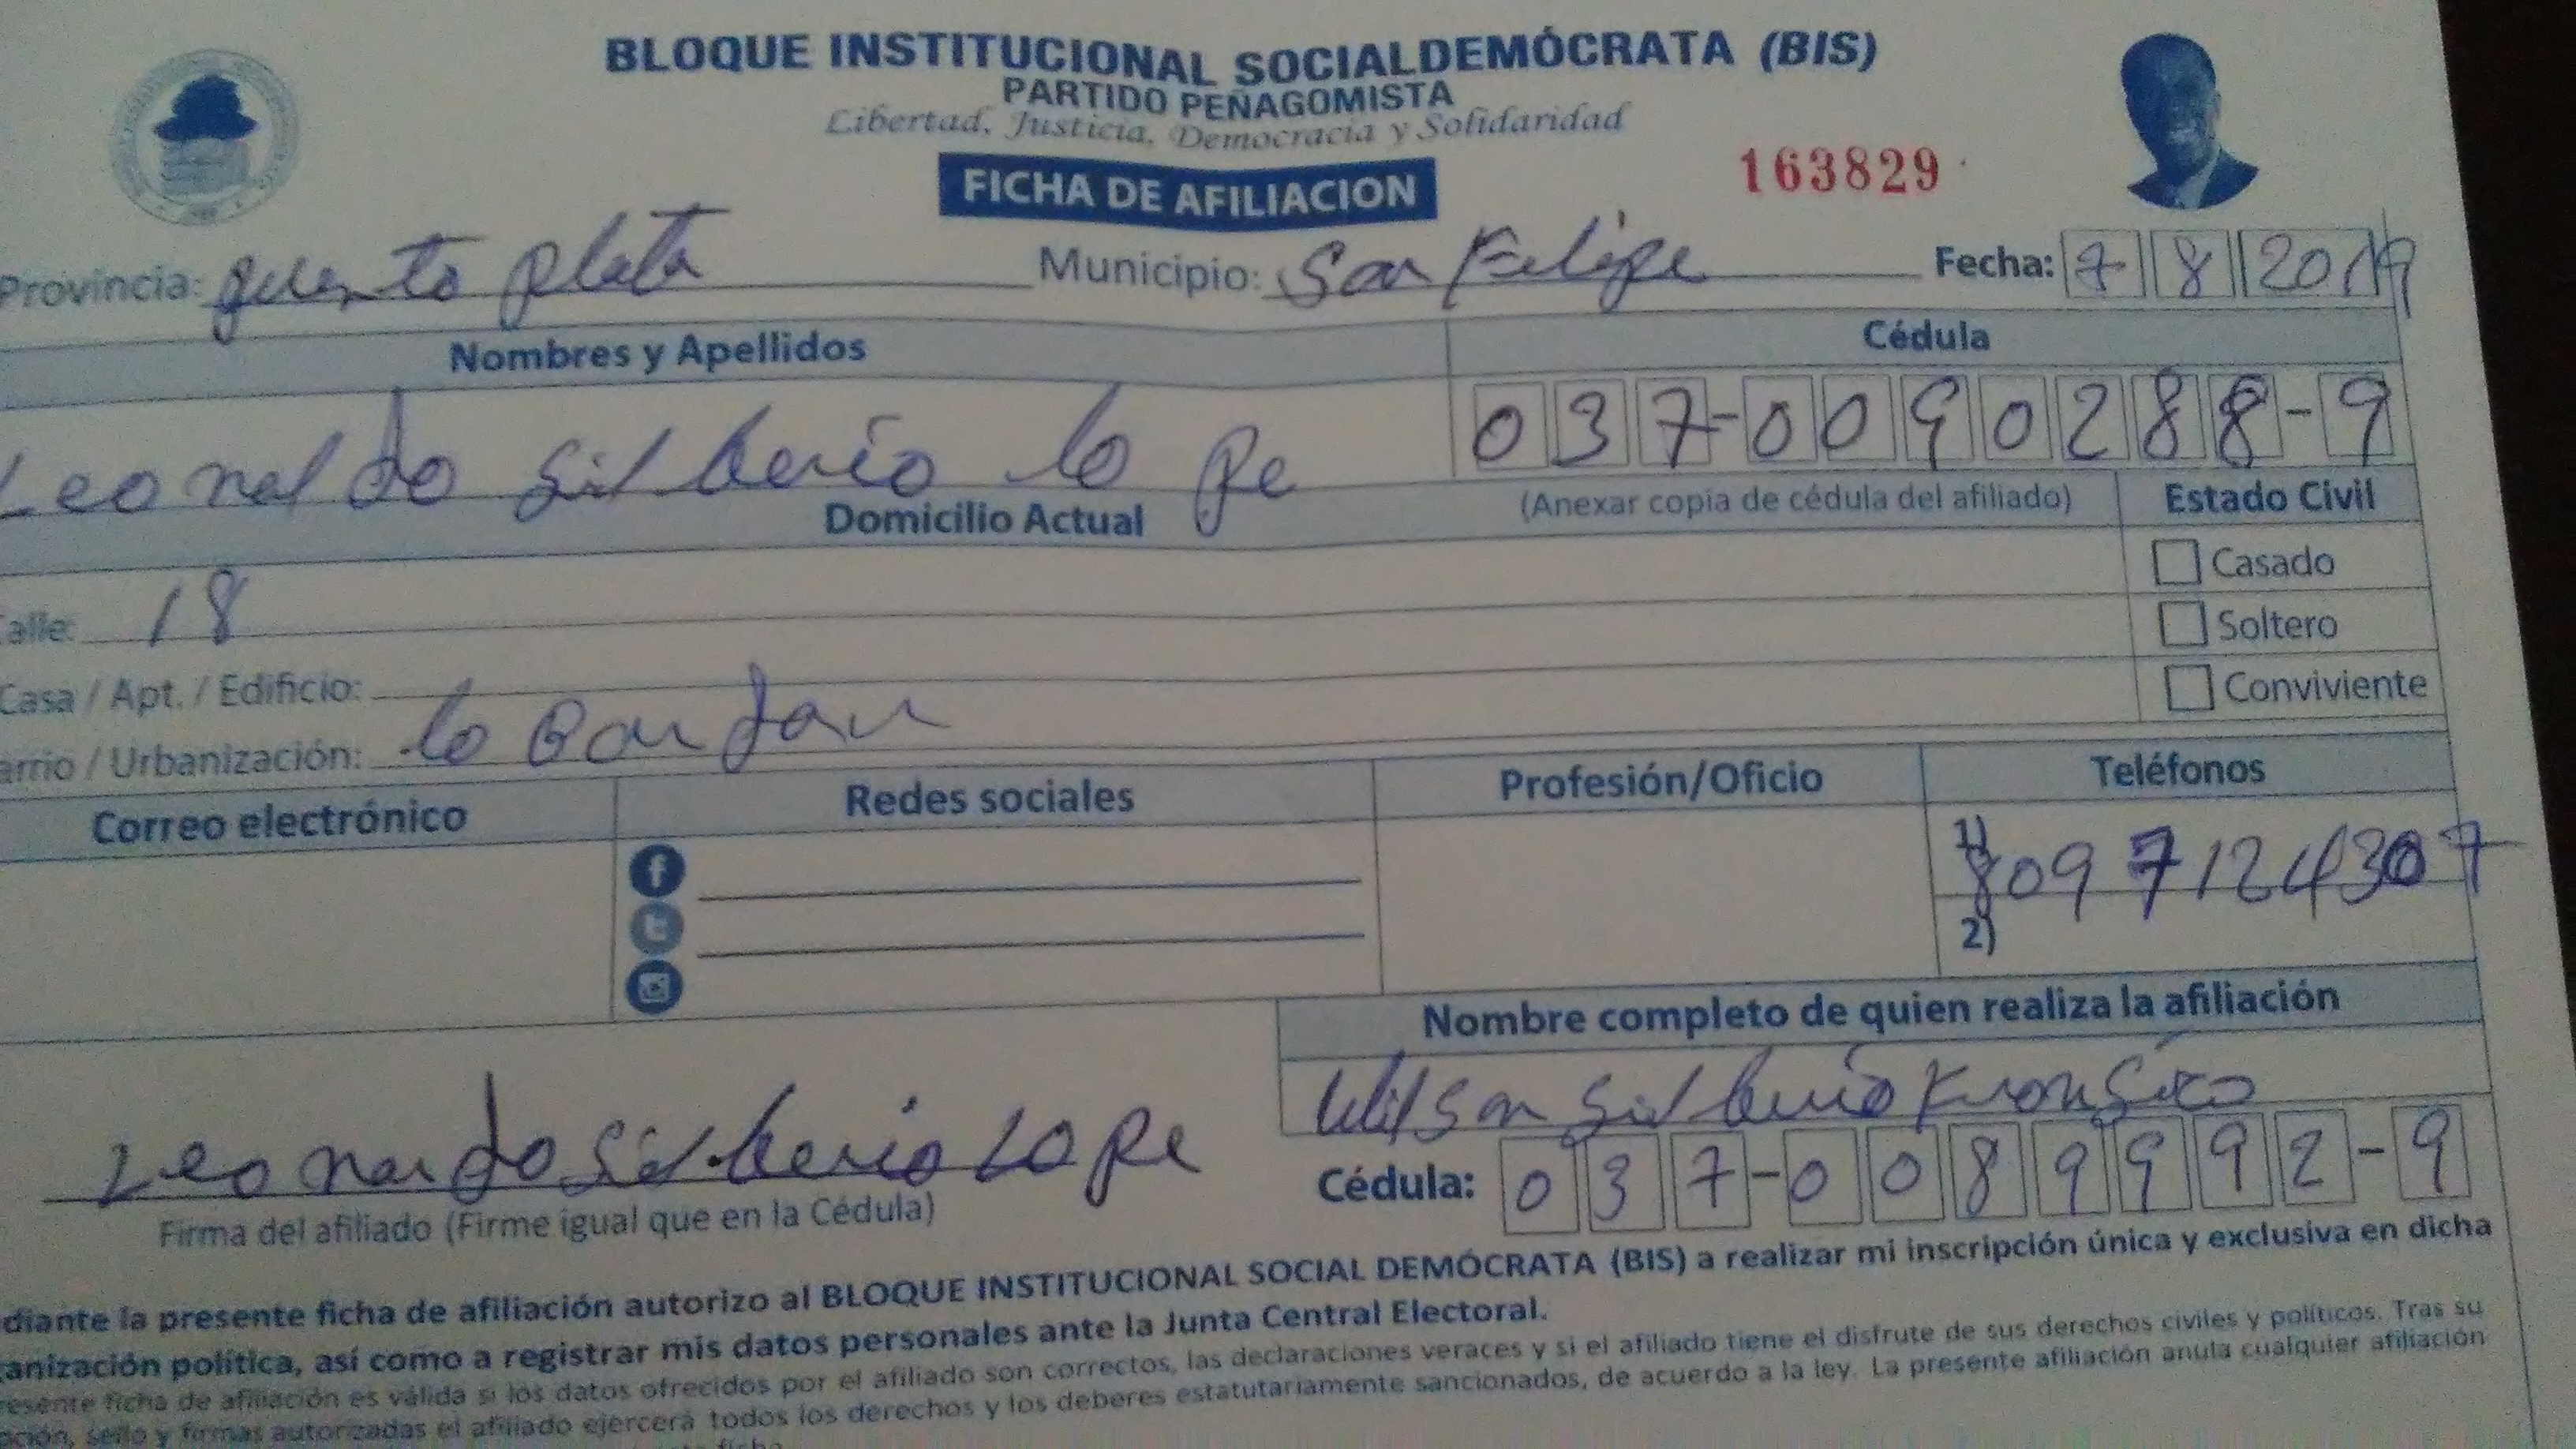 BLOQUE INSTITUCIONAL SOCIALDEMÓCRATA (BIS)
PARTIDO PEÑAGOMISTA
Libertad, Justicia, Democracia y Solidaridad
FICHA DE AFILIACION
163829
Provincia: puerto plata Municipio: San Felipe Fecha: 7 8 2019
Nombres y Apellidos Cédula
Leonaldo Silberio lope 037-0090288-9
Domicilio Actual (Anexar copia de cédula del afiliado) Estado Civil
Casado
alle: 18
Soltero
Casa / Apt. / Edificio:
Conviviente
arrio / Urbanización: lo
Correo electrónico Redes sociales Profesión/Oficio Teléfonos
1) 809 7124307
2)
Nombre completo de quien realiza la afiliación
Wilson Silberio
Leonardo Silberio Lope
Cédula: 037-0089992-9
Firma del afiliado (Firme igual que en la Cédula)
diante la presente ficha de afiliación autorizo al BLOQUE INSTITUCIONAL SOCIAL DEMÓCRATA (BIS) a realizar mi inscripción única y exclusiva en dicha
anización política, así como a registrar mis datos personales ante la Junta Central Electoral.
resente ficha de afiliación es válida si los datos ofrecidos por el afiliado son correctos, las declaraciones veraces y si el afiliado tiene el disfrute de sus derechos civiles y políticos. Tras su
ación, sello y firmas autorizadas el afiliado ejercerá todos los derechos y los deberes estatutariamente sancionados, de acuerdo a la ley. La presente afiliación anula cualquier afiliación